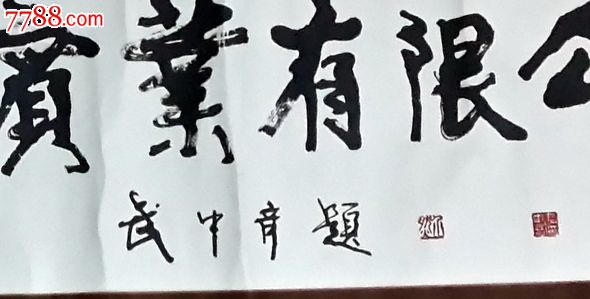 7788.com
實業有限公
武中奇題